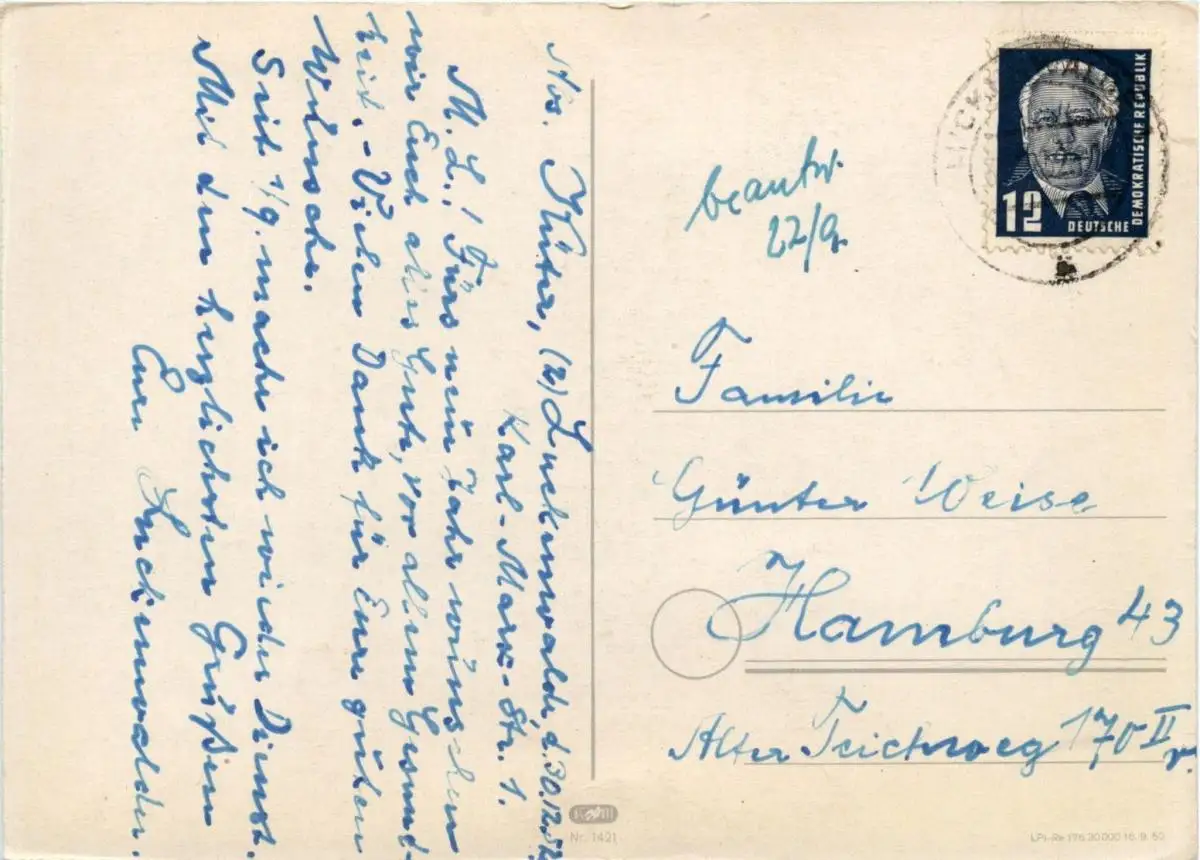 Abs. Küter, (2) Luckenwalde, d. 30.12.52
Karl-Marx-Str. 1.
M. L.! Fürs neue Jahr wünschen
wir Euch alles Gute, vor allem Gesund-
heit. - Vielen Dank für Eure guten
Wünsche.
Seit 1/9. mache ich wieder Dienst.
Mit den herzlichsten Grüßen
Eure Luckenwalder.
beantw.
22/9.
12
DEUTSCHE
DEMOKRATISCHE REPUBLIK
Familie
Günter Weise
Hamburg 43
Alter Teichweg 170 II
r.
Nr. 1421